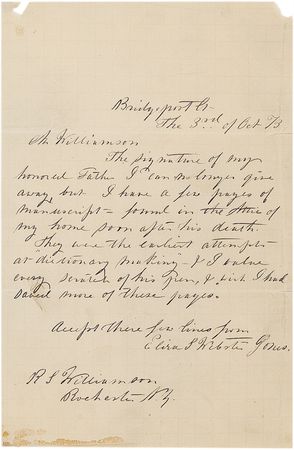 Bridgeport Ct
The 3rd of Oct 73
Mr Williamson
The signature of my
honored Father I can no longer give
away, but I have a few pages of
manuscript - found in the attic of
my home soon after his death.
They were the earliest attempts
at "dictionary making" - & I value
every scratch of his Pen, & wish I had
saved more of these pages.
Accept these few lines from
Eliza S Webster Jones.
R S Williamson
Rochester N.Y.